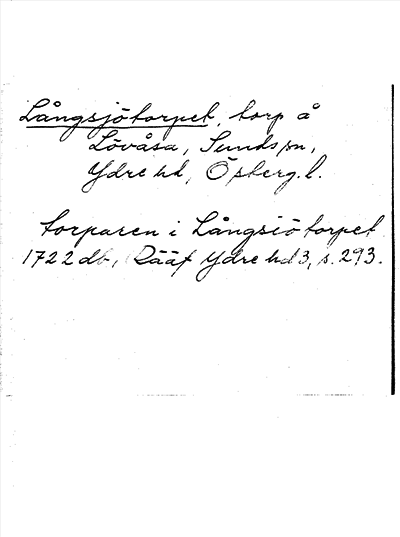 Långsjötorpet, torp å
Lövåsa, Sunds sn,
Ydre hd, Östergötl.
torparen i Långsiö torpet
1722 db, Rääf Ydre hd 3, s. 293.